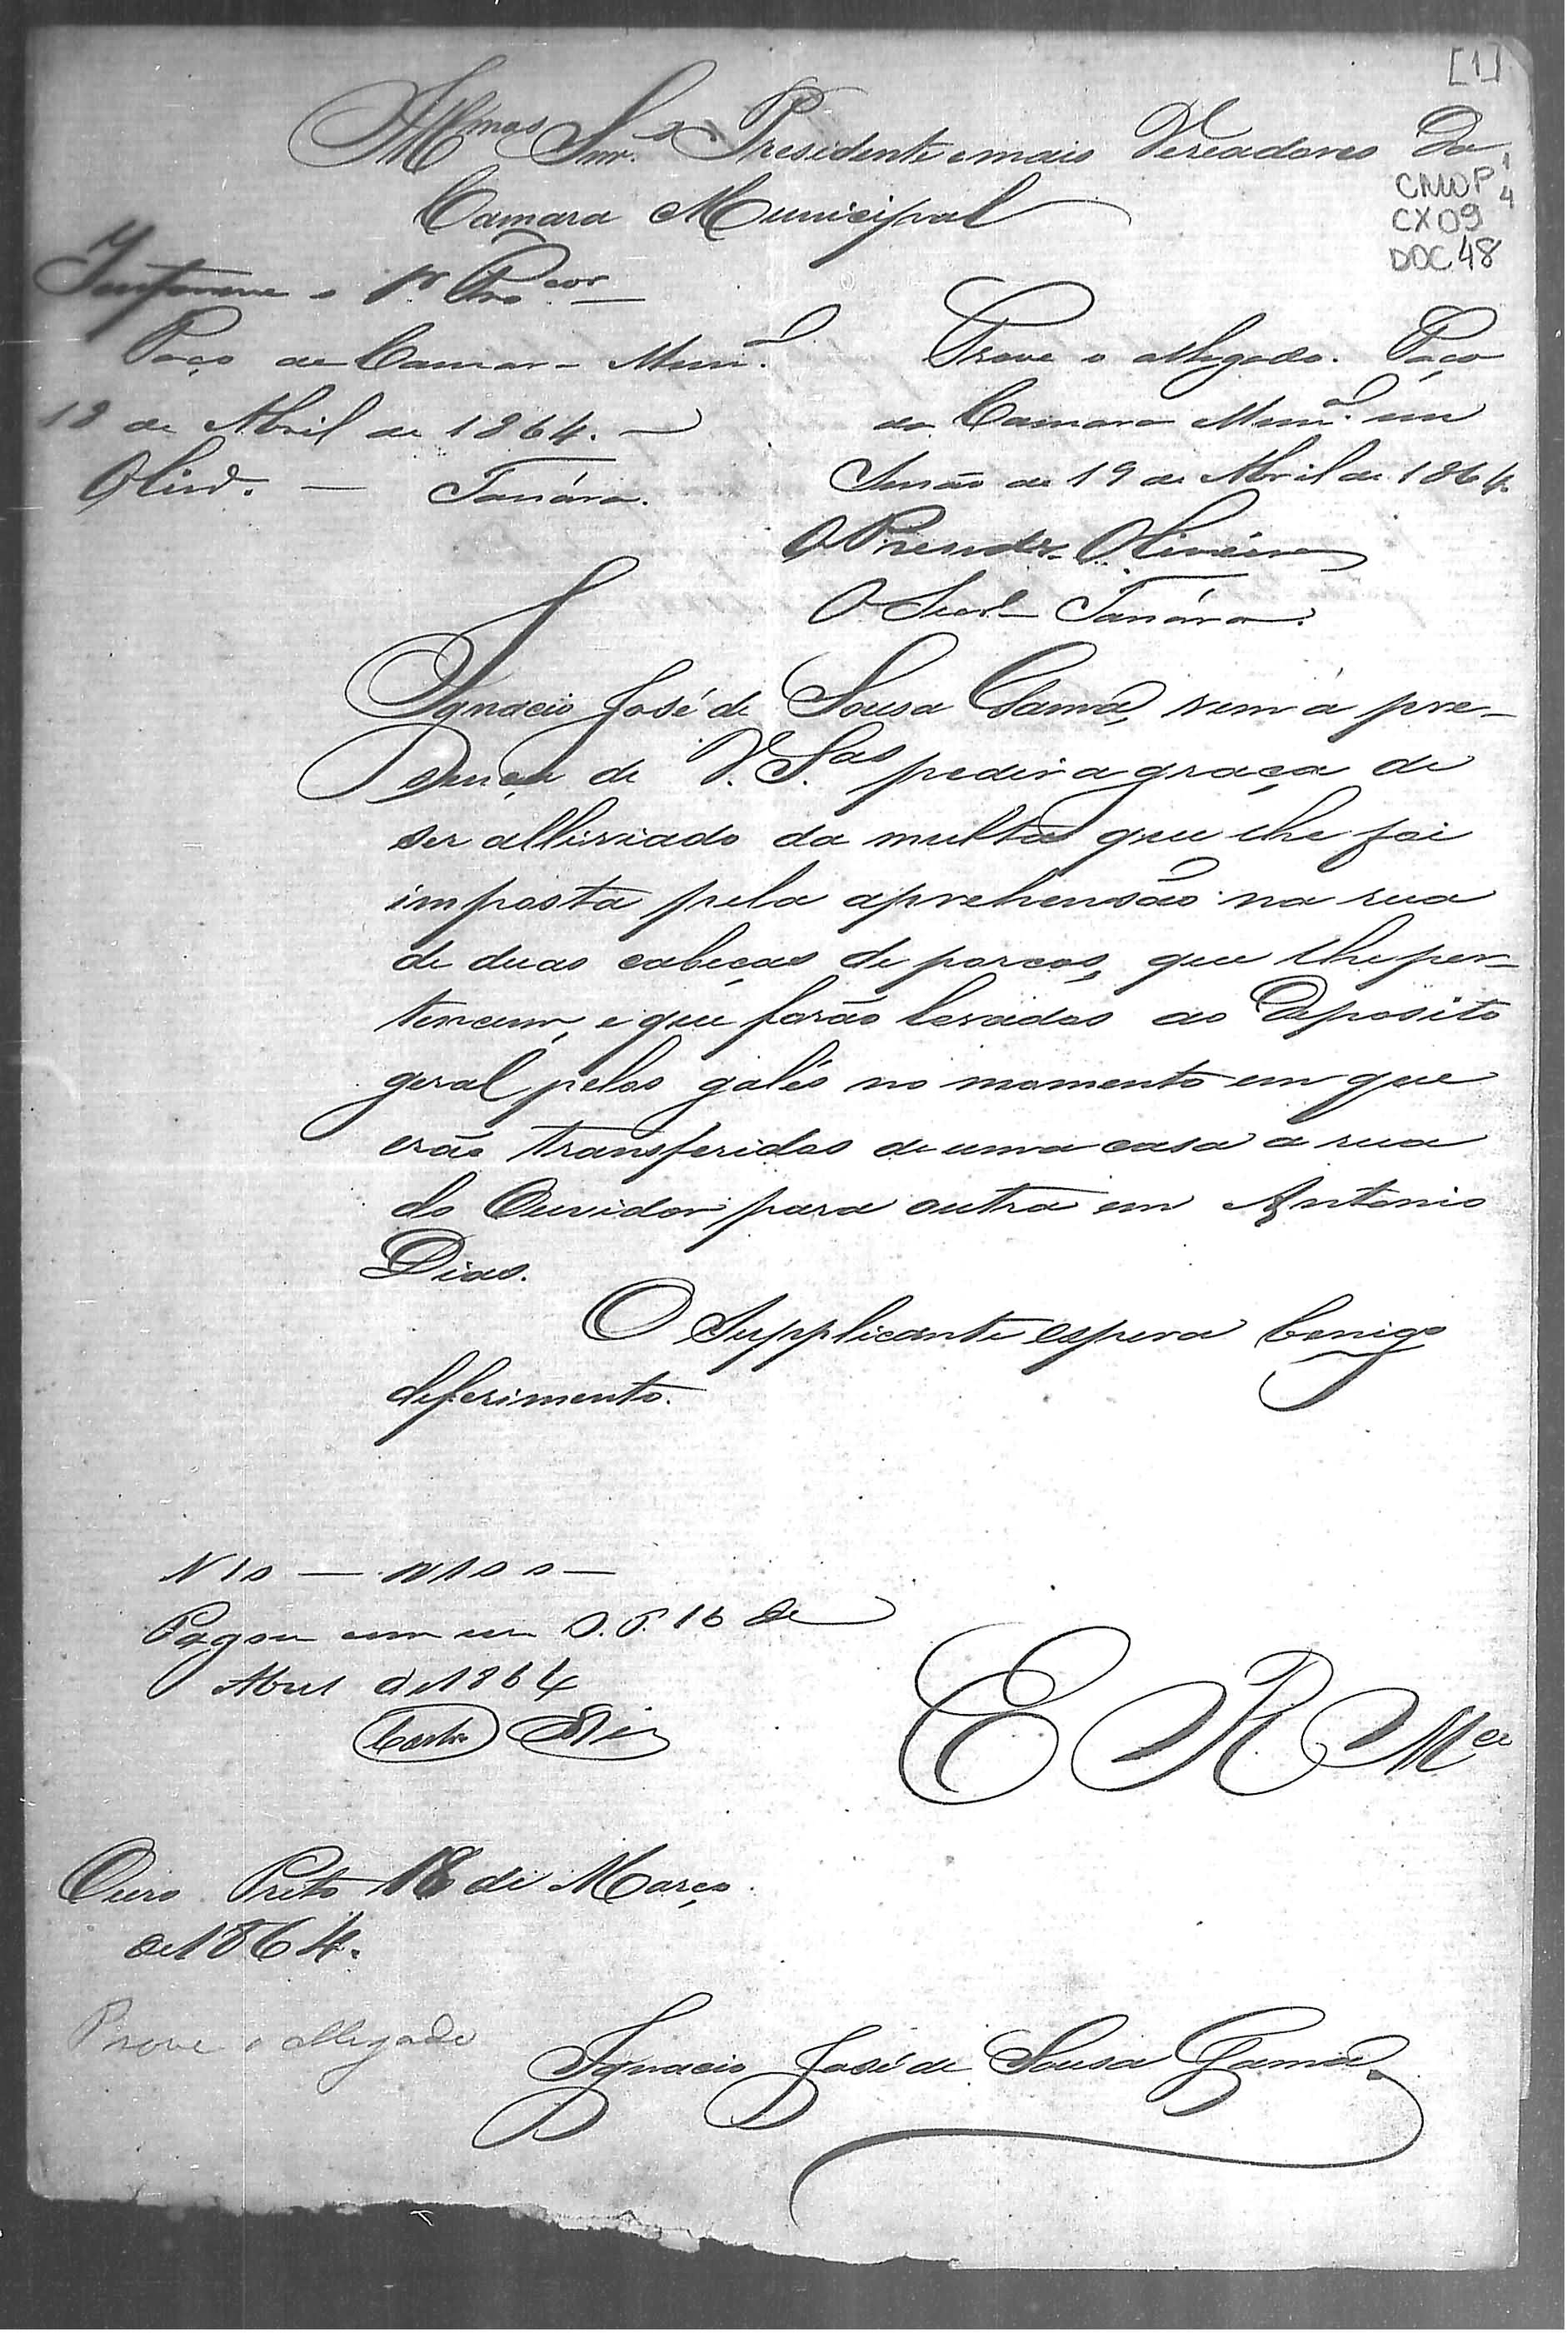 [1]
Illmos Snr.s Presidente e mais Vereadores da
Camara Municipal
CMOP 1
CX09 4
DOC 48
Informe o Procor
Paço da Camara Munal
18 de Abril de 1864.
Prove o allegado. Paço
da Camara Munal em
Sessão de 19 de Abril de 1864.
O Preside Oliveira
O Secr
Ignacio José de Sousa Gama, vem á pre-
sença de V. Sas pedir a graça de
ser alliviado da multa que lhe foi
imposta pela aprehensão na rua
de duas cabeças de porcos, que lhe per-
tencem, e que forão levados ao Deposito
geral pelos galés no momento em que
erão transferidos de uma casa a rua
do Ouvidor para outra em Antonio
Dias.
O Supplicante espera benigo
deferimento.
Pagou cem O. P. 16 de
Abril de 1864
E R Mce
Ouro Preto 18 de Março
de 1864.
Prove o allegado
Ignacio José de Sousa Gama.